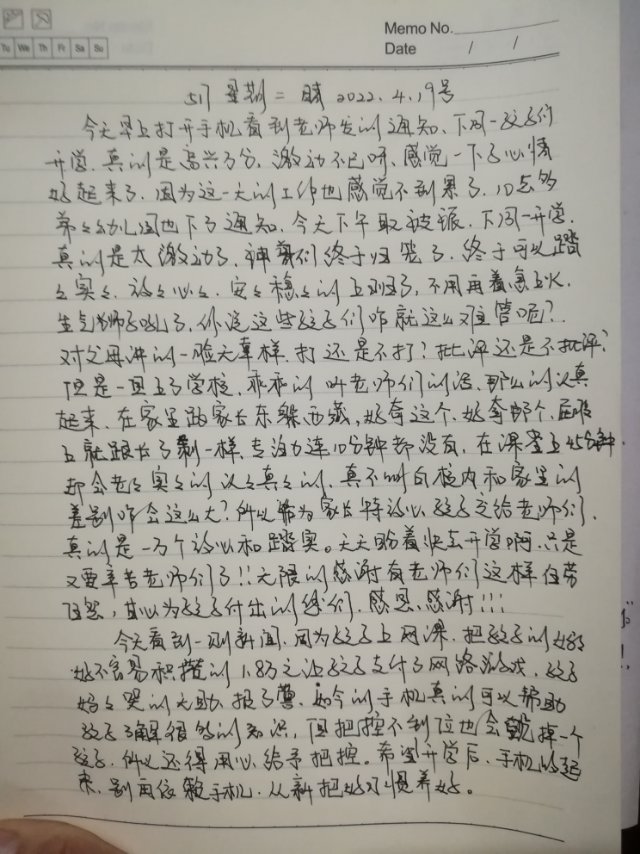 Memo No.
Tu We Th Fr Sa Su
Date / /
517 星期二 晴 2022.4.19号
今天早上打开手机看到老师发的通知、下周一孩子们
开学、真的是高兴万分、激动不已呀、感觉一下子心情
好起来了、因为这一大的工作也感觉不到累了、10点多
弟弟幼儿园也下了通知、今天下午取被褥、下周一开学、
真的是太激动了、神兽们终于归笼了、终于可以踏
踏实实、放放心心、安安稳稳的上班了、不用再着急上火、
生气狮子吼了、你说这些孩子们咋就这么难管呢?
对父母讲的一脸无辜样、打还是不打?批评还是不批评?
但是一旦去了学校、乖乖的听老师们的话、那么的认真
起来、在家里跟家长东躲西藏、好奇这个、好奇那个、屁股
上就跟长了刺一样、专注力连10分钟都没有、在课堂上45分钟
都会老老实实的认认真真的、真不明白校内和家里的
差别咋会这么大?所以作为家长特放心孩子交给老师们、
真的是一万个放心和踏实。天天盼着快点开学啊、只是
又要辛苦老师们了!!无限的感谢有老师们这样任劳
任怨,甘心为孩子付出的您们、感恩、感谢!!!
今天看到一则新闻、因为孩子上网课、把孩子的妈妈
好不容易积攒的1.8万元让孩子支付了网络游戏、孩子
妈妈哭的无助、报了警、如今的手机真的可以帮助
孩子了解很多的知识,但把控不到位也会毁掉一个
孩子、所以还得用心给予把控。希望开学后、手机收起
来、别再依赖手机、从新把好习惯养好。